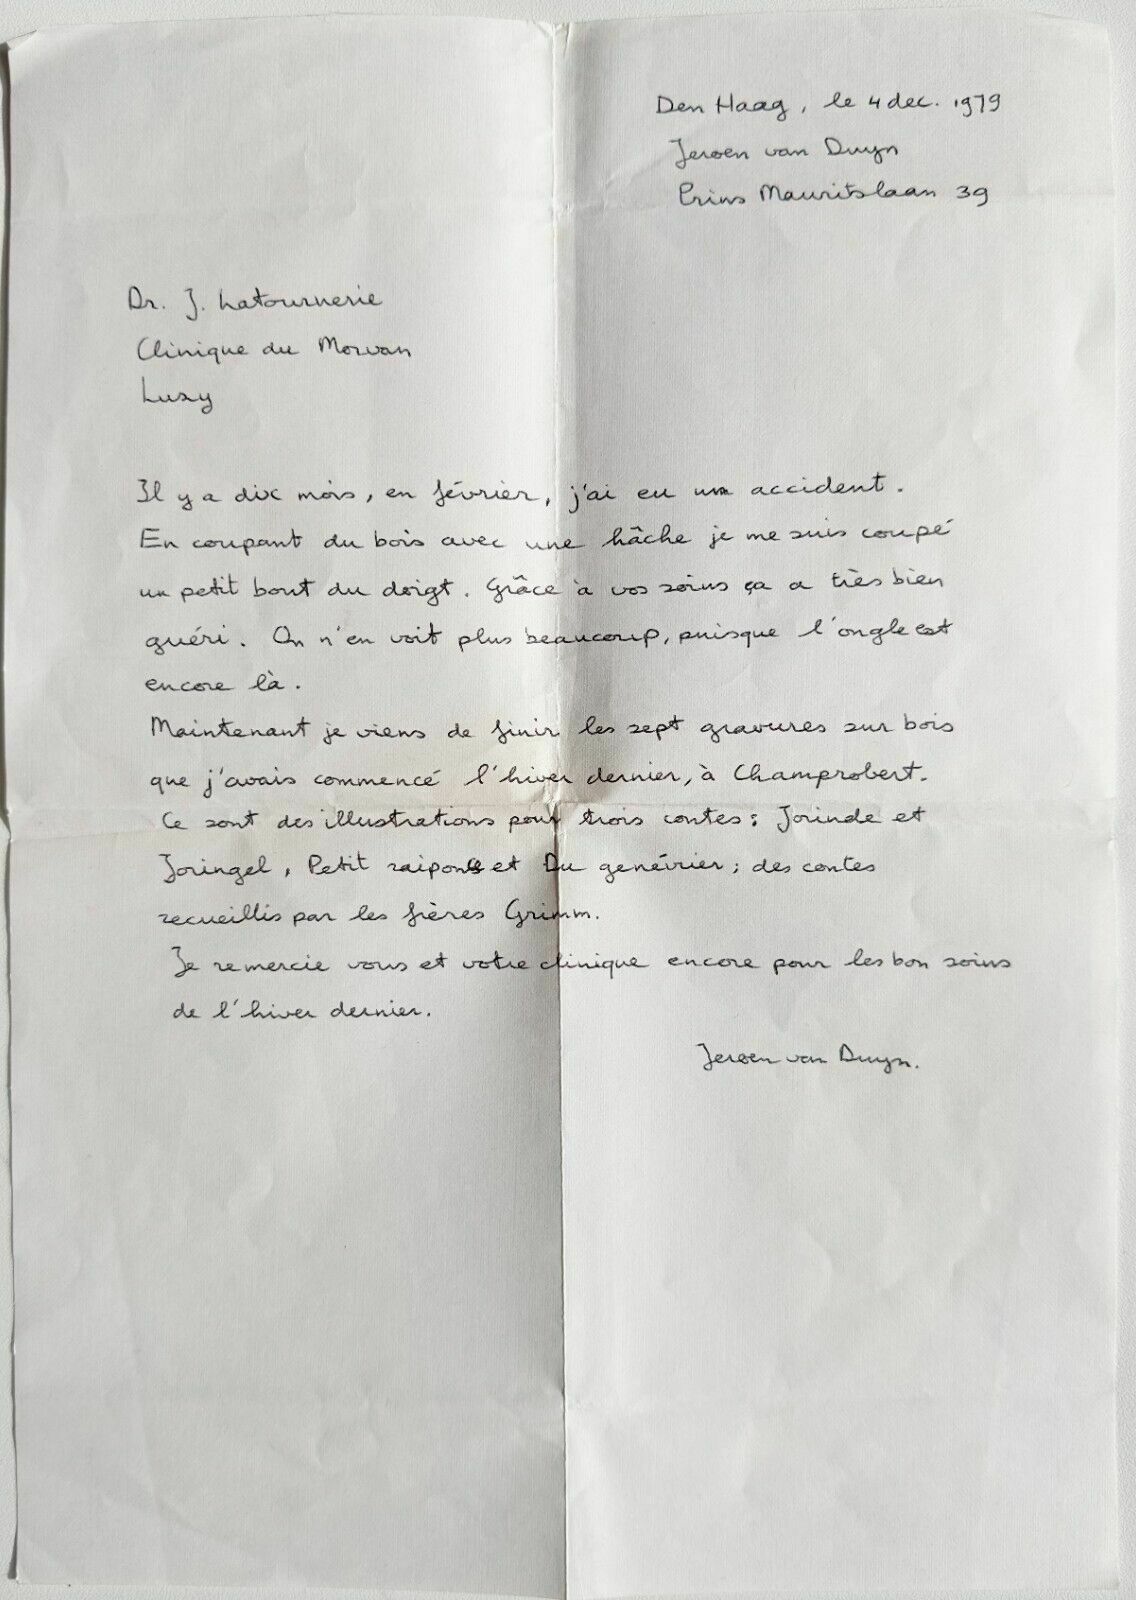 Den Haag, le 4 dec. 1979
Jeroen van Duyn
Prins Mauritslaan 39
Dr. J. Latournerie
Clinique du Morvan
Luzy
Il y a dix mois, en février, j'ai eu un accident.
En coupant du bois avec une hâche je me suis coupé
un petit bout du doigt. Grâce à vos soins ça a très bien
guéri. On n'en voit plus beaucoup, puisque l'ongle est
encore là.
Maintenant je viens de finir les sept gravures sur bois
que j'avais commencé l'hiver dernier, à Champrobert.
Ce sont des illustrations pour trois contes: Jorinde et
Joringel, Petit raiponce et Du genévrier; des contes
recueillis par les frères Grimm.
Je remercie vous et votre clinique encore pour les bon soins
de l'hiver dernier.
Jeroen van Duyn.